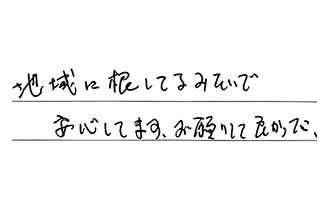 地域に根してるみたいで
安心してます、お願いして良かった、